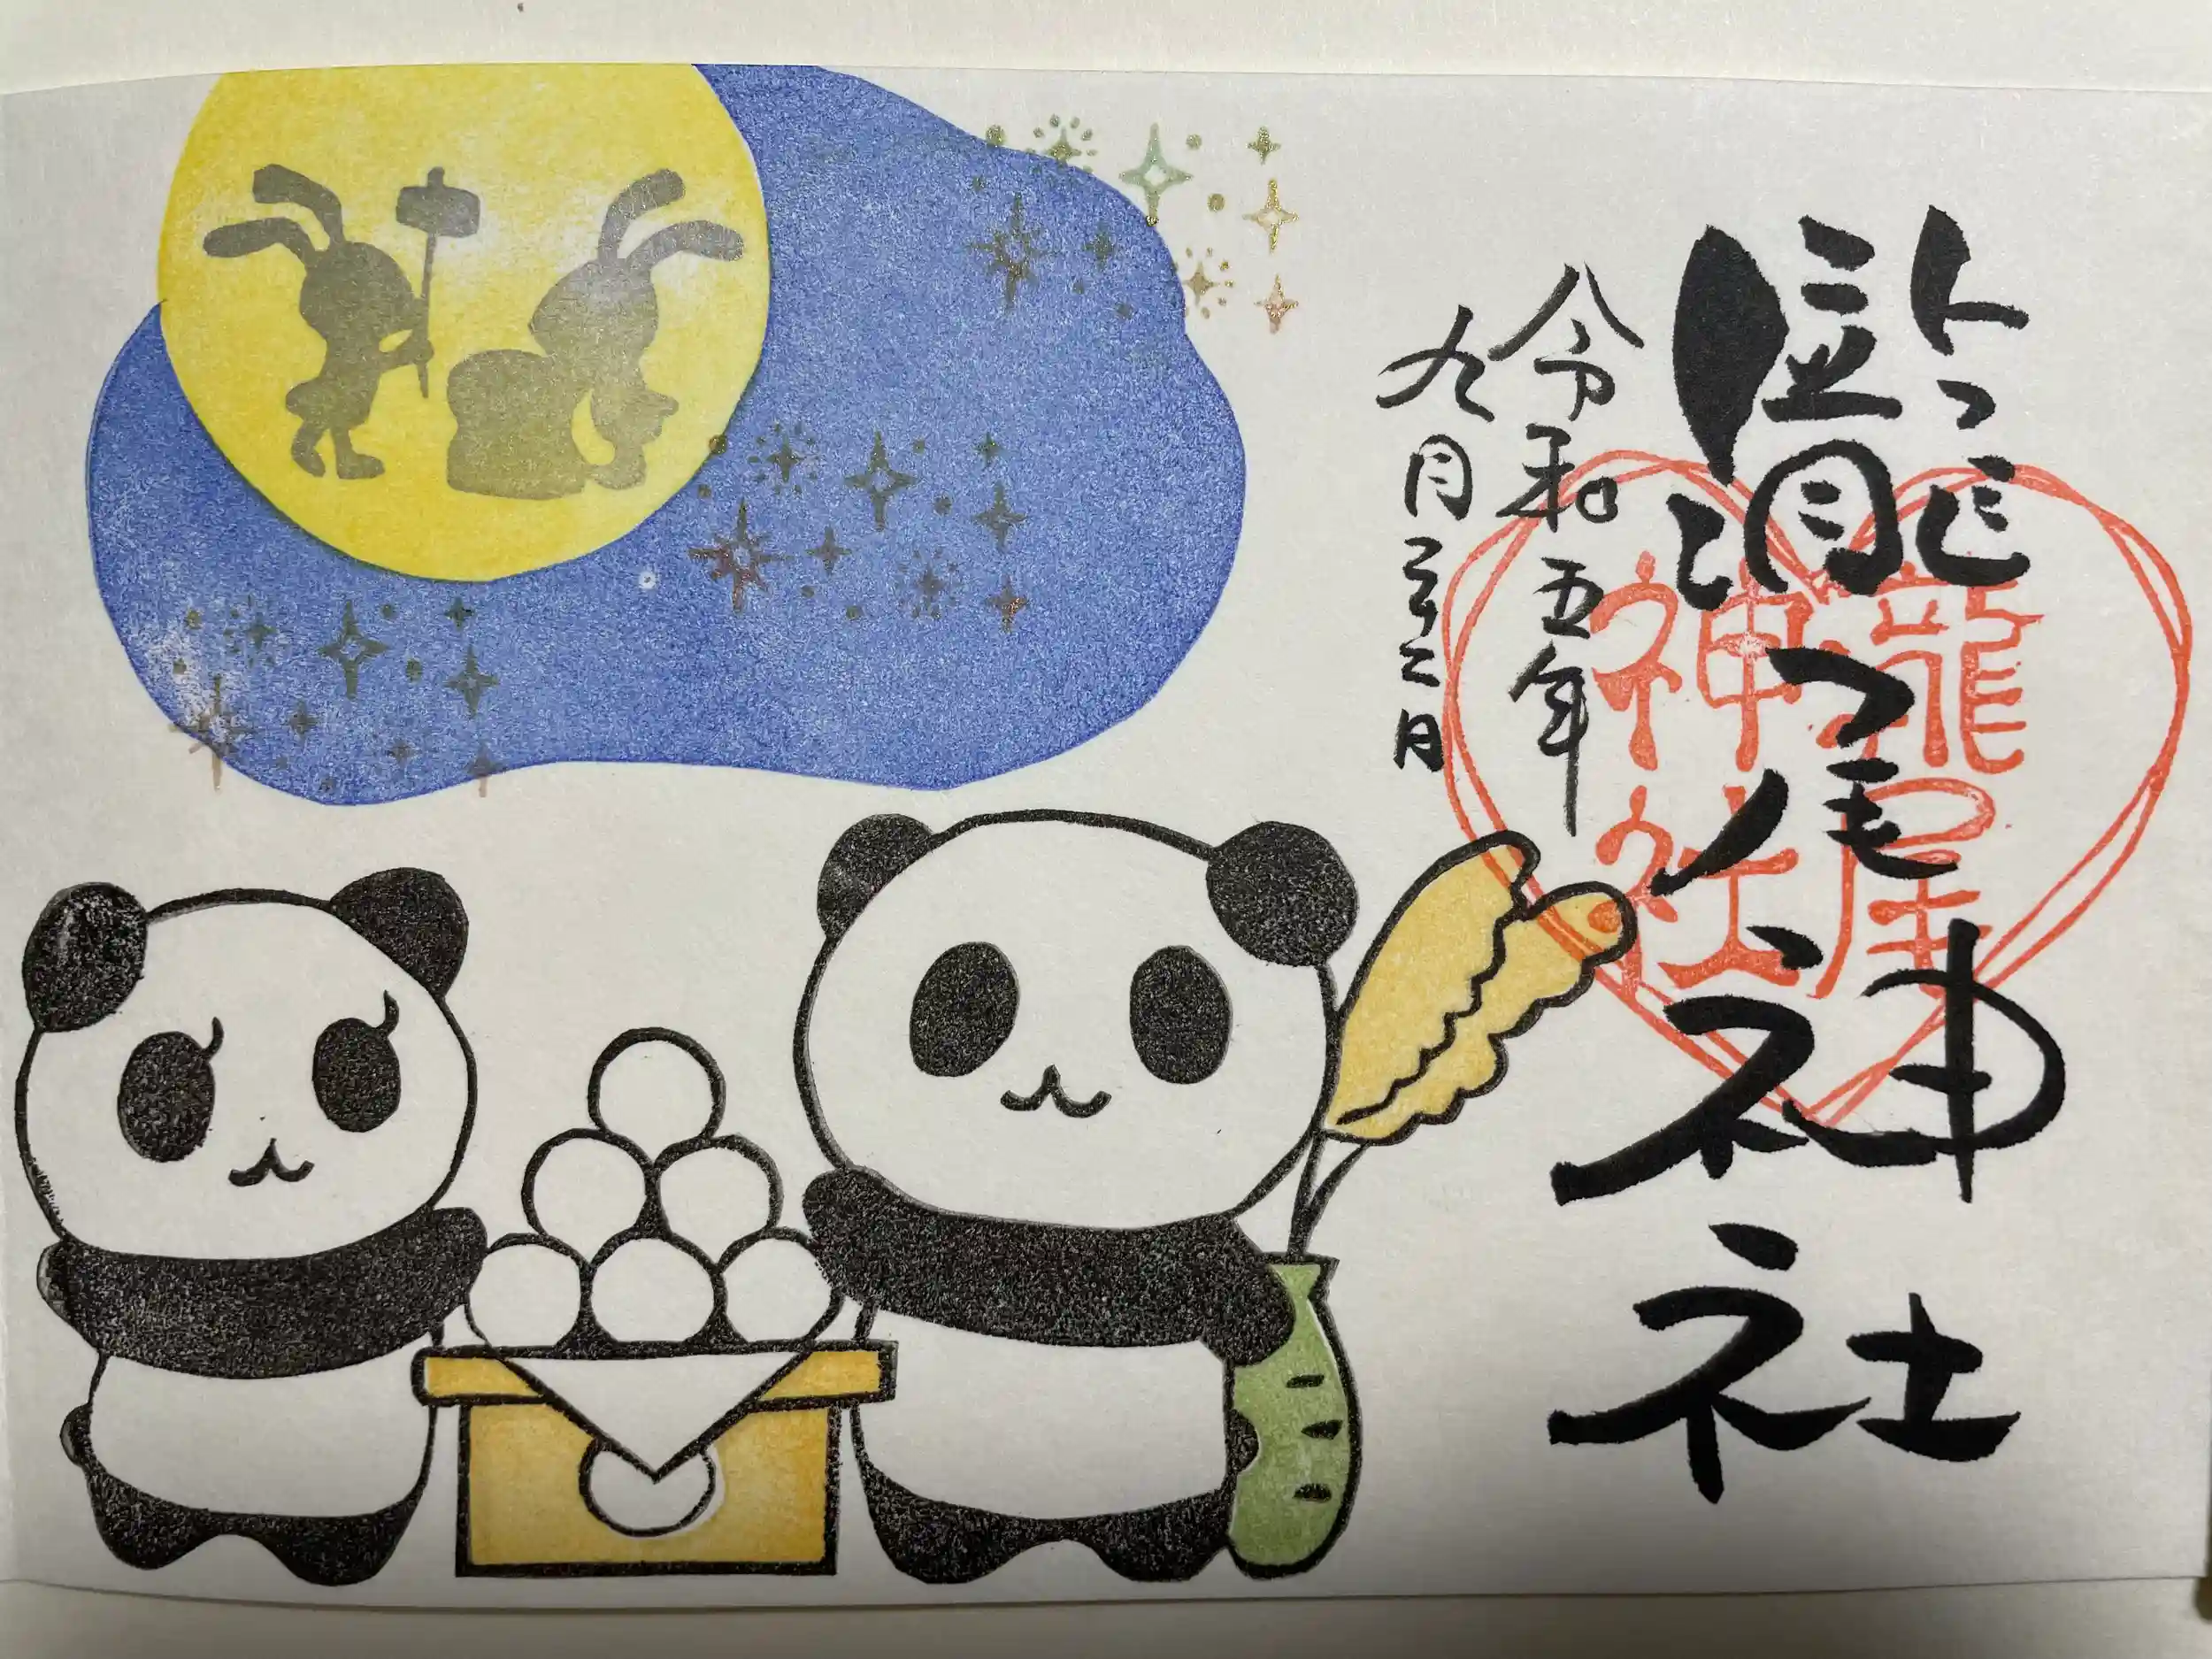 龍尾神社
龍尾
神社
令和五年
九月二十二日